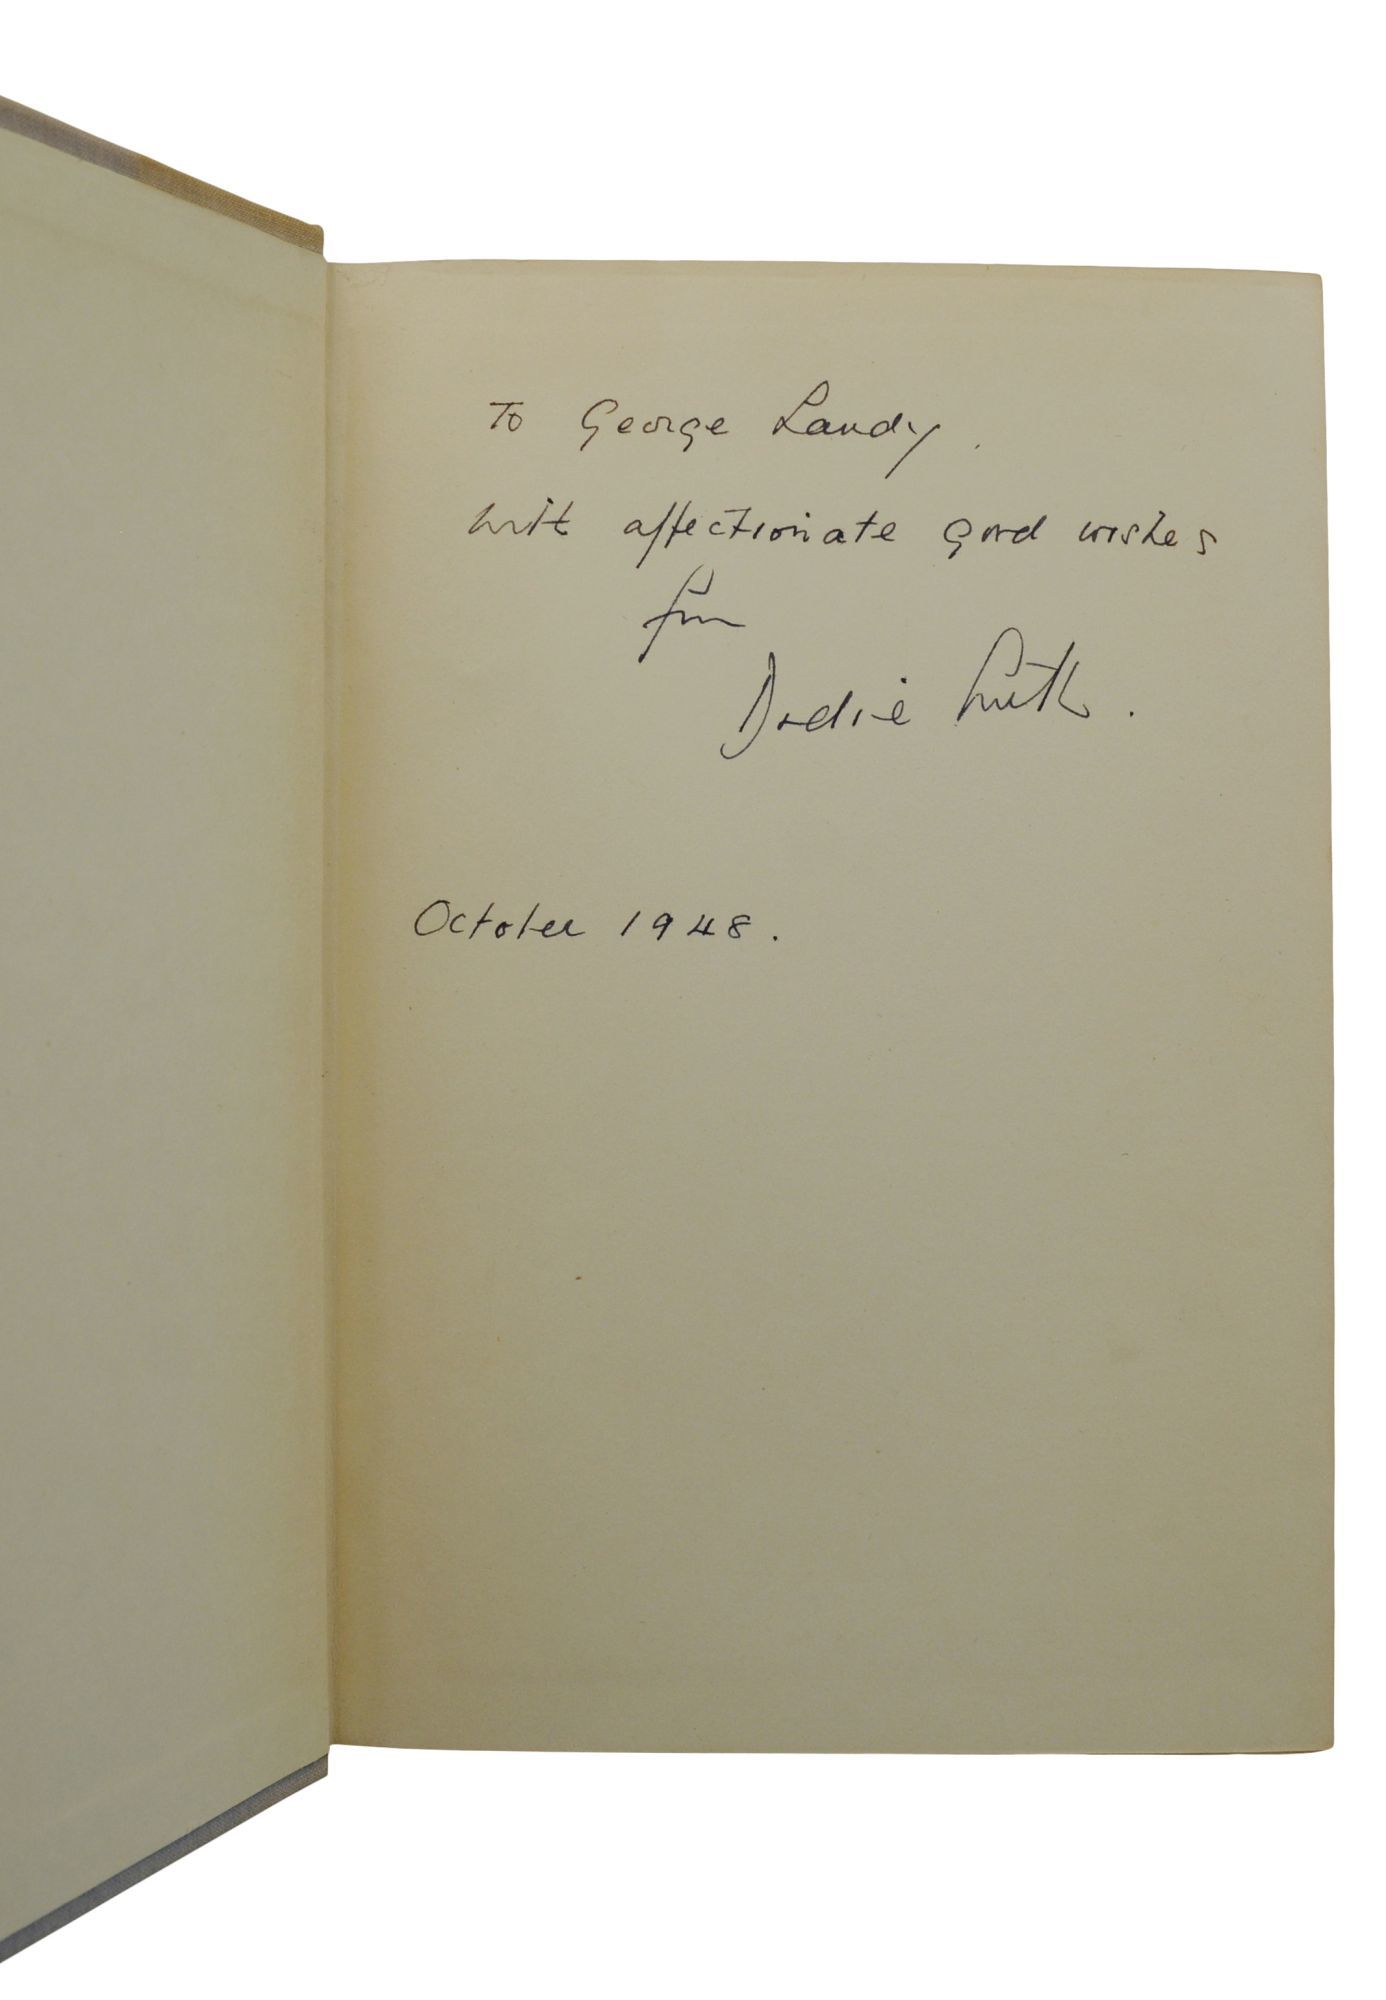 To George Landy.
with affectionate good wishes
from
Dodie Smith.
October 1948.